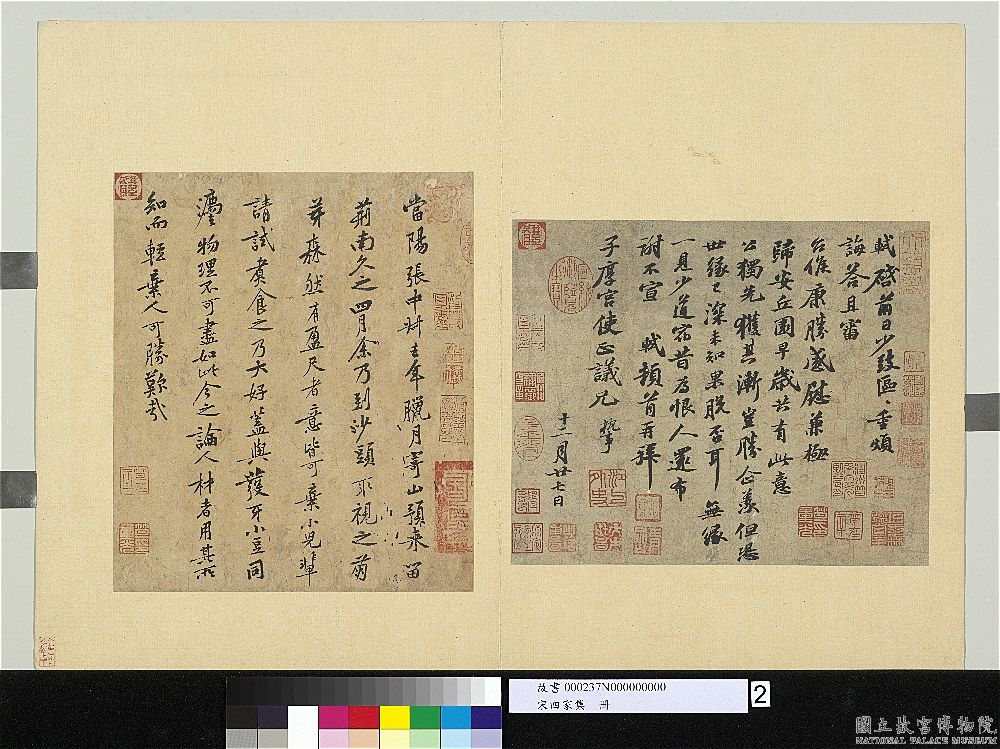 軾啓前日少致區區重煩
誨答且審
台候康勝感慰兼極
歸安丘園早歲共有此意
公獨先獲其漸豈勝企羨但恐
世緣已深未知果脫否耳無緣
一見少道宿昔為恨人還布
謝不宣 軾頓首再拜
子厚宮使正議兄 執事
十二月廿七日
當陽張中叔去年臘月寄山預來留
荊南久之四月余乃到沙頭取視之萌
芽森然有盈尺者意皆可棄小兒輩
請試煮食之乃大好蓋與發牙小豆同
法物理不可盡如此今之論人材者用其所
知而輕棄人可勝歎哉
故書 000237N000000000
宋四家集 冊
2
國立故宮博物院
NATIONAL PALACE MUSEUM